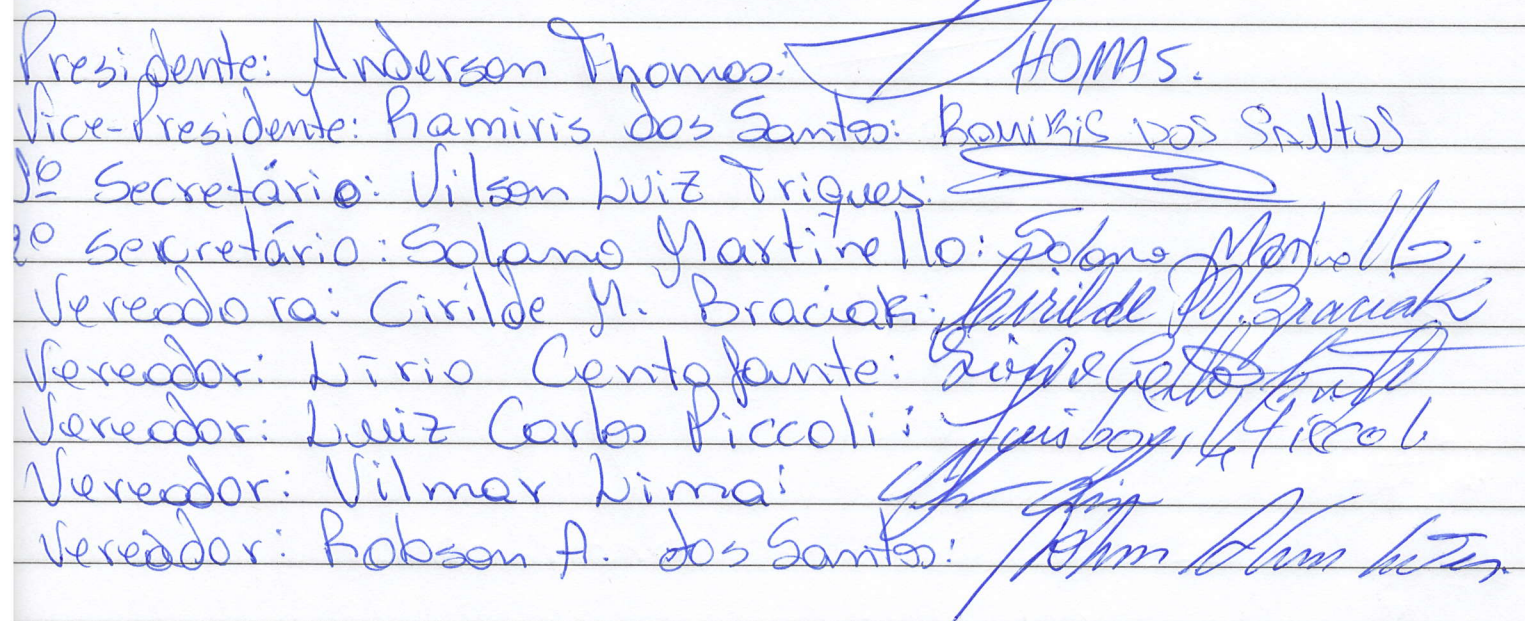 Presidente: Anderson Thomas: THOMAS.
Vice-Presidente: Ramiris dos Santos: RAMIRIS DOS SANTOS
1º Secretário: Vilson Luiz Triques:
2º Secretário: Solano Martinello: Solano Martinello.
Vereadora: Cirilde M. Braciak: Cirilde M. Braciak
Vereador: Lírio Centofante:
Vereador: Luiz Carlos Piccoli:
Vereador: Vilmar Lima:
Vereador: Robson A. dos Santos: